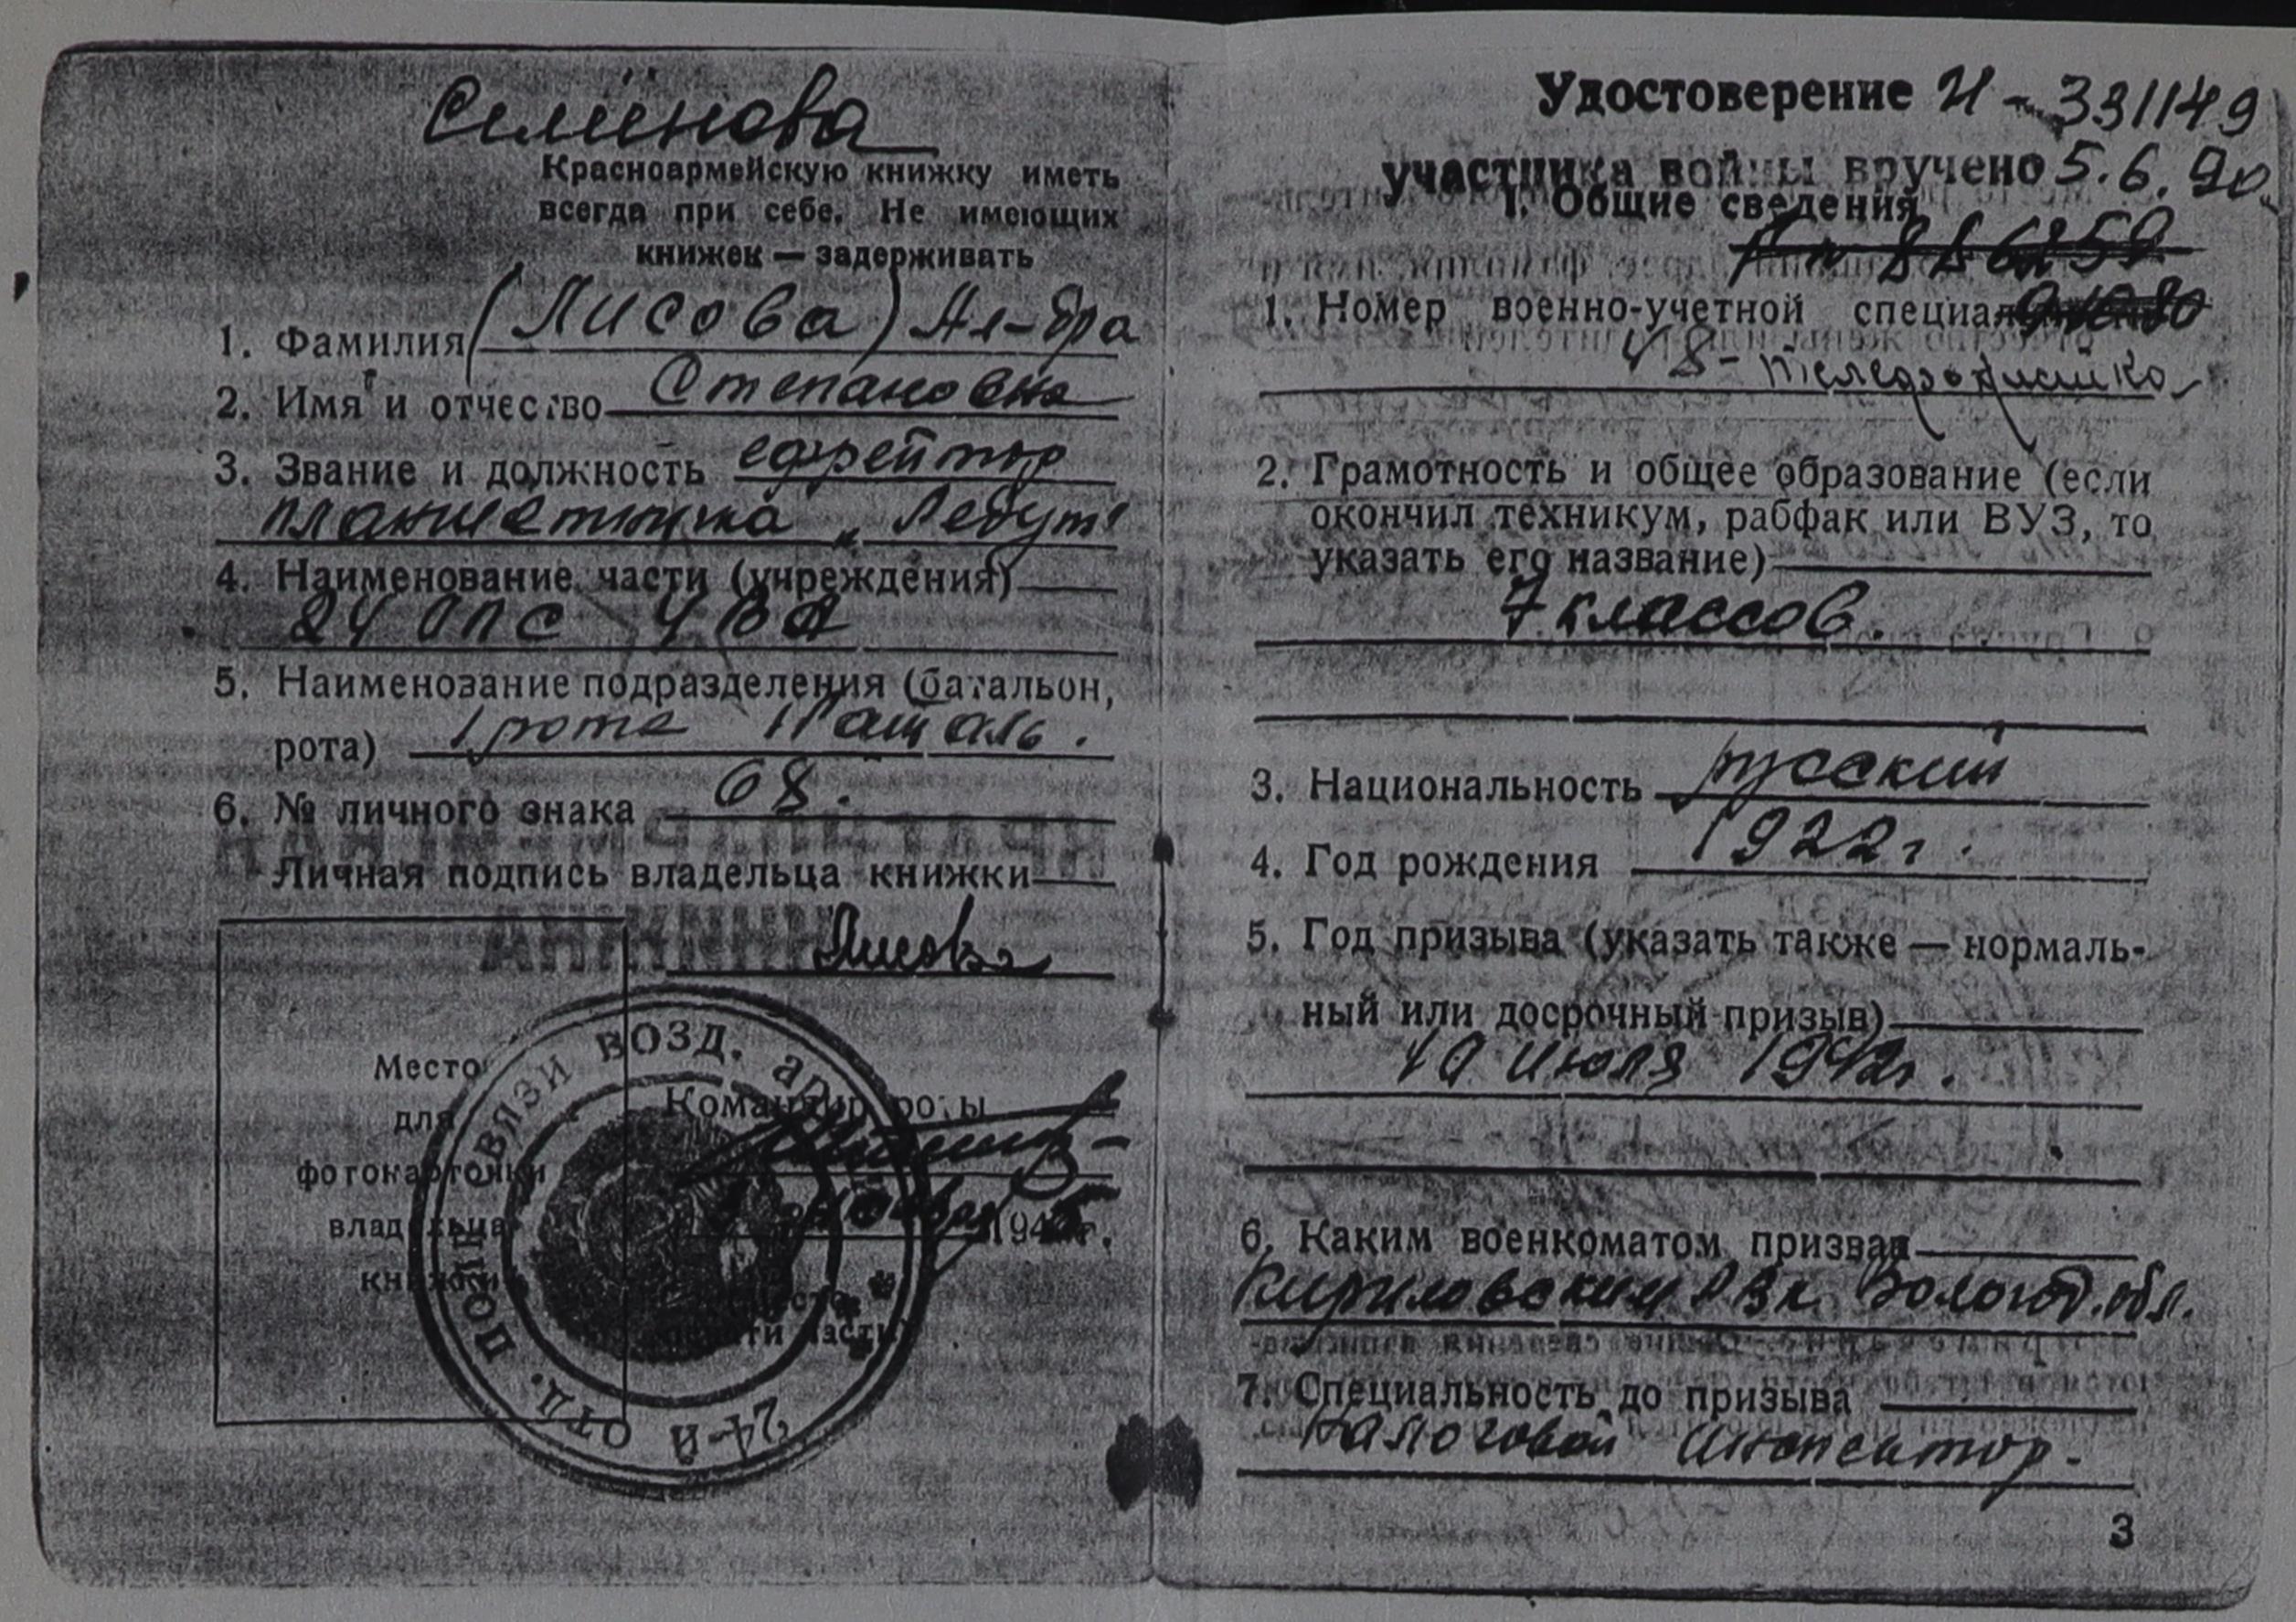 Семёнова
Красноармейскую книжку иметь
всегда при себе. Не имеющих
книжек — задерживать
1. Фамилия (Лисова) Ал-дра
2. Имя и отчество Степановна
3. Звание и должность ефрейтор
планшетистка
4. Наименование части (учреждения)
24 ОПС 4 ВА
5. Наименование подразделения (батальон,
рота) 1 рота
6. № личного знака 68.
Личная подпись владельца книжки
Лисова
Место
для
фотокарточки
владельца
книжки
Командир роты
194 г.
24-й отд. полк связи возд. арм
Удостоверение И - 331149
участника войны вручено 5.6.90
I. Общие сведения
1. Номер военно-учетной
48 - телефонистка
2. Грамотность и общее образование (если
окончил техникум, рабфак или ВУЗ, то
указать его название)
7 классов.
3. Национальность русский
4. Год рождения 1922 г.
5. Год призыва (указать также — нормаль-
ный или досрочный призыв)
10 июля 1942 г.
6. Каким военкоматом призван
Кириловским РВК Вологод. обл.
7. Специальность до призыва
Налоговой инспектор.
3